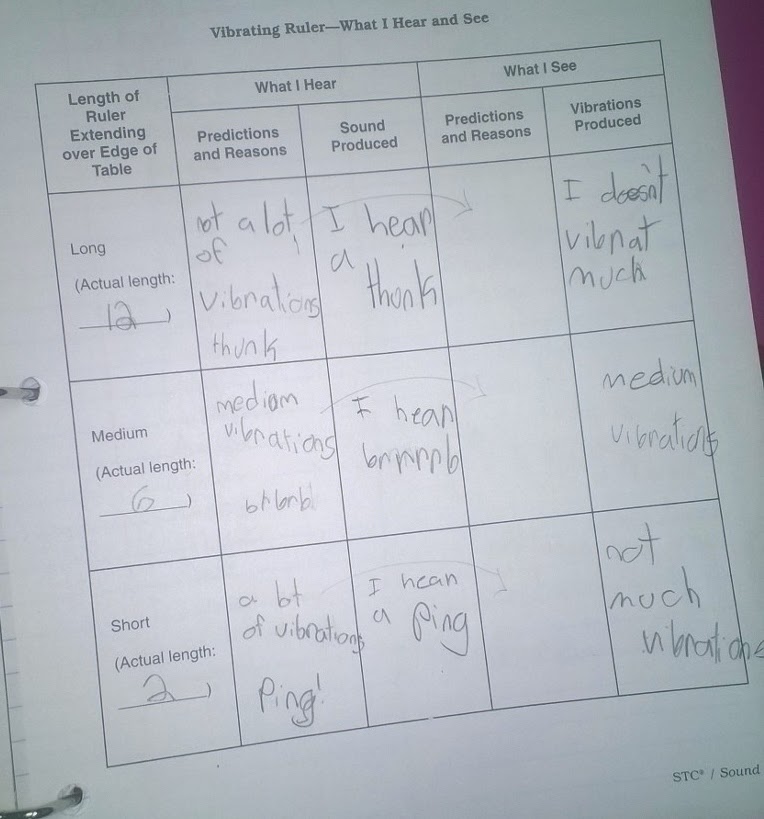 Vibrating Ruler—What I Hear and See
Length of
Ruler
Extending
over Edge of
Table
What I Hear
What I See
Predictions
and Reasons
Sound
Produced
Predictions
and Reasons
Vibrations
Produced
Long
(Actual length:
12 )
not a lot
of
vibrations
thunk
I hear
a
thonk
I doesn't
vibnat
much
Medium
(Actual length:
6 )
mediom
vibrations
brbrb
I hear
brrrrrb
medium
vibrations
Short
(Actual length:
2 )
a lot
of vibrations
Ping!
I hear
a Ping
not
much
vibrations
STC® / Sound